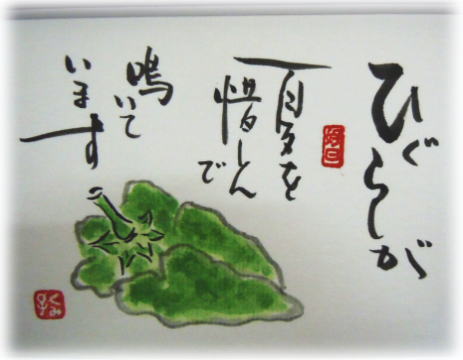 ひぐらしが
夏を
惜しんで
鳴いて
います